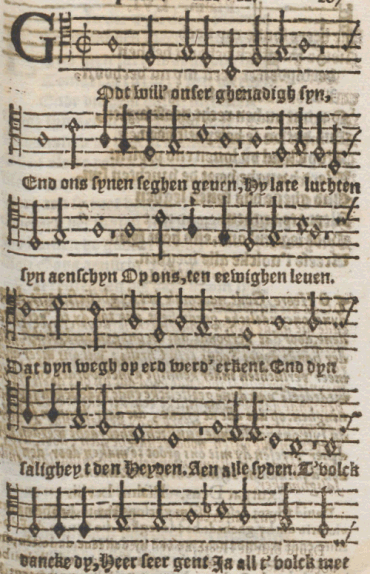 GOdt will' onser ghenadigh syn,
End ons synen seghen geuen, Hy late luchten
syn aenschyn Op ons, ten eewighen leuen.
Dat dyn wegh op erd werd' erkent. End dyn
saligheyt den Heyden. Aen alle syden. T'volck
dancke dy, Heer seer gent Ja all t' volck met